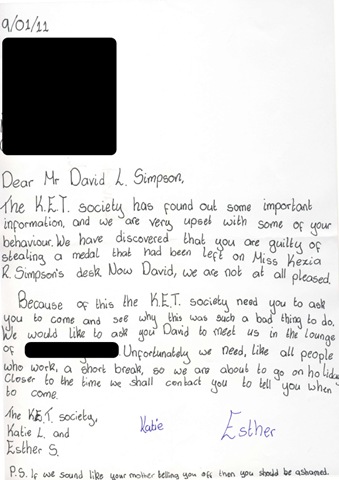 9/01/11
Dear Mr David L. Simpson,
The K.E.T. society has found out some important
information, and we are very upset with some of your
behaviour. We have discovered that you are guilty of
stealing a medal that had been left on Miss Kezia
R. Simpson's desk. Now David, we are not at all pleased.
Because of this the K.E.T. society need you to ask
you to come and see why this was such a bad thing to do.
We would like to ask you David to meet us in the lounge
of . Unfortunately we need, like all people
who work, a short break, so we are about to go on holiday
Closer to the time we shall contact you to tell you when
to come.
The K.E.T. society,
Katie L. and
Esther S.
Katie
Esther
P.S. If we sound like your mother telling you off then you should be ashamed.